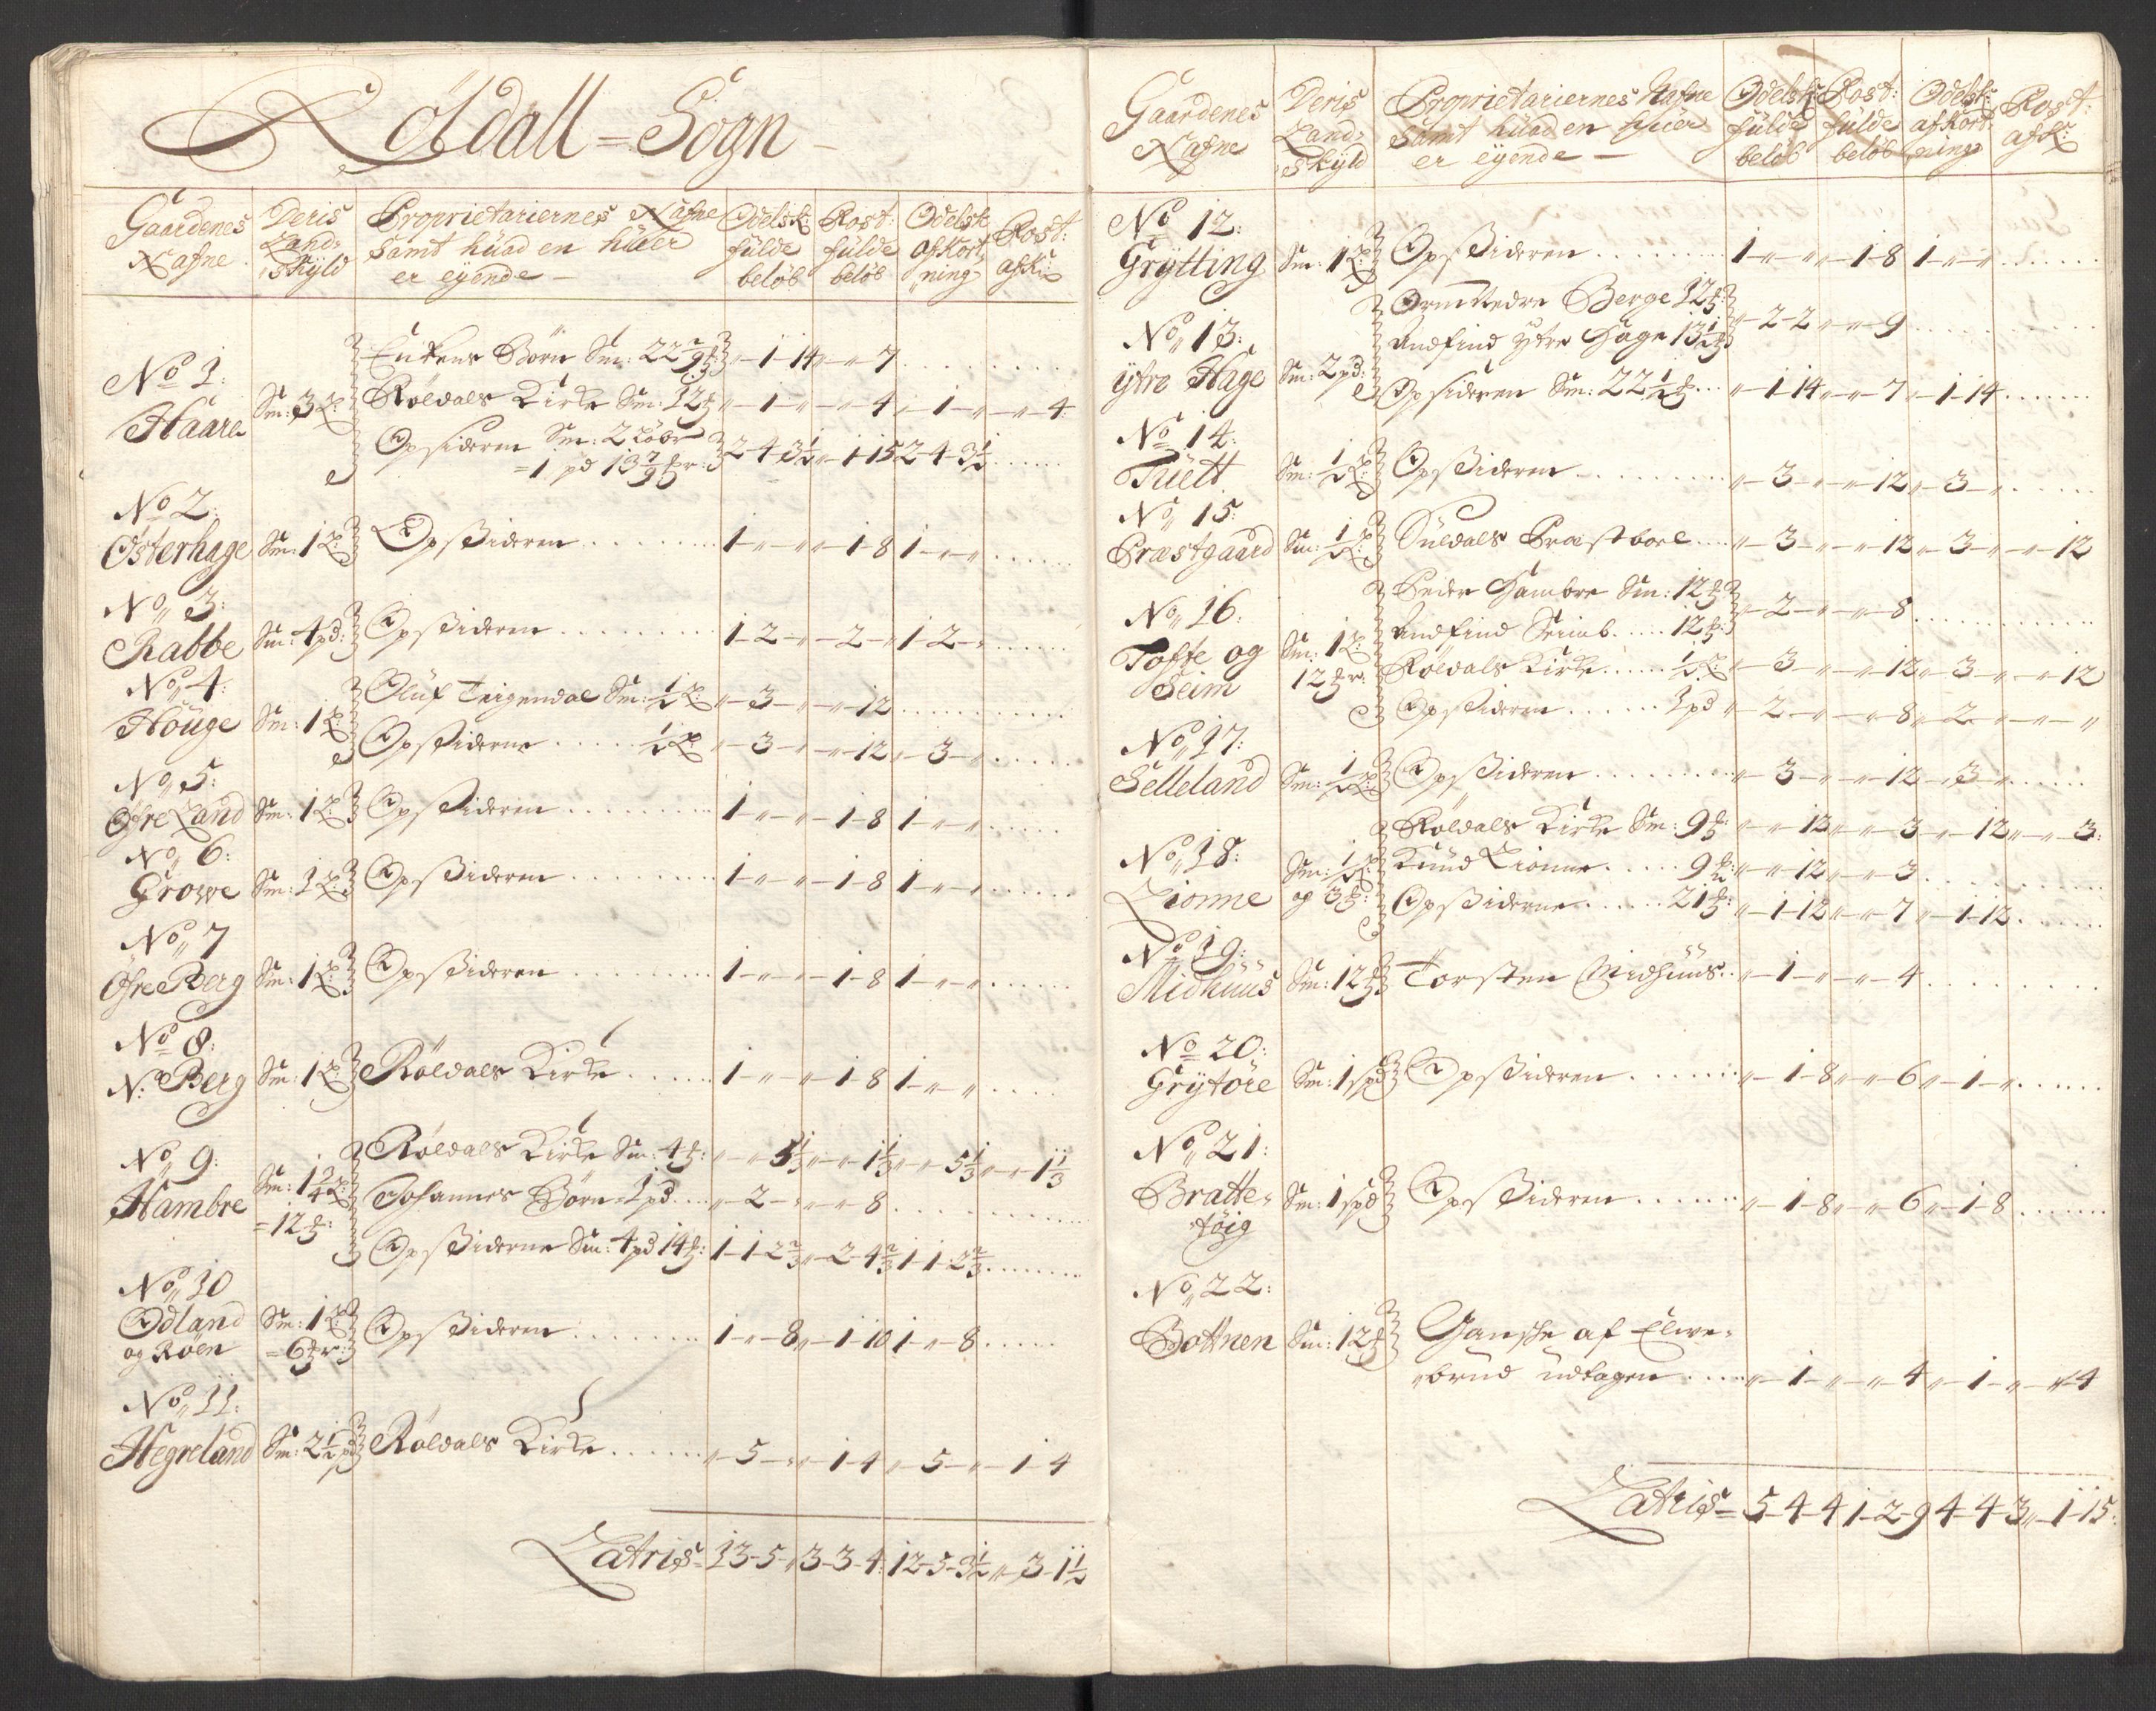 Röldall = Sogn
Gaardenes Nafne
Deris Land= skÿld
Proprietariernes Nafne Samt hüad en hüer er eÿende
Odelsk: fülde beløb
Rost: fülde beløb
Odelsk: afkort ning
Rost: afk:
No 1:
Haare Sm: 3
Enkens Börn Sm: 22 2/9 " - 1 - 14 " - " 7
Röldals Kirke Sm: 12 " - 1 - " " - " - 4 " - 1 - " " - " - 4
Opsideren Sm: 2 Löber
= 1 pd 13 7/9 2 - 4 - 3 1/2 " - 1 - 15 2 - 4 - 3 1/2
No 2:
Österhage Sm: 1 Opsideren 1 - " - " " - 1 - 8 1 - " - "
No 3:
Rabbe Sm: 4 pd: Opsideren 1 - 2 - " " - 2 - " 1 - 2 - "
No 4:
Höuge Sm: 1
Oluf Teigendal Sm: 1/2 " - 3 - " " - " 12
Opsiderne 1/2 " - 3 - " " - " - 12 " - 3 - "
No 5:
Öfre Land Sm: 1 Opsideren 1 - " - " " - 1 - 8 1 - " - "
No 6:
Growe Sm: 1 Opsideren 1 - " - " " - 1 - 8 1 - " - "
No 7
Öfre Berg Sm: 1 Opsideren 1 - " - " " - 1 - 8 1 - " - "
No 8:
N: Berg Sm: 1 Röldals Kirke 1 - " - " " - 1 - 8 1 - " - "
No 9:
Hambre Sm: 1 3/4
= 12
Röldals Kirke Sm: 4 " - " - 5 1/3 " - " - 1 1/3 " - " 5 1/3 " - " 1 1/3
Johannes Börn 1 pd " - 2 - " " - " 8
Opsiderne Sm: 4 pd 14 1 - 1 - 2 2/3 " - 2 - 4 2/3 1 - 1 - 2 2/3
No 10
Odland og Röen Sm: 1
= 6 Opsideren 1 - " - 8 " - 1 - 10 1 - " - 8
No 11:
Hegreland Sm: 2 1/2 pd Röldals Kirke " - 5 - " " - 1 - 4 " - 5 - " " - 1 - 4
Latris - 13 - 5 - " 3 - 3 - 4 12 - 5 - 3 1/2 " - 3 - 1 1/2
Gaardenes Nafne
Deris Land= skÿld
Proprietariernes Nafne Samt hüad en hüer er eÿende
Odelsk: fülde beløb
Rost: fülde beløb
Odelsk: afkort ning
Rost: afk:
No 12:
Grÿtting Sm: 1 Opsideren 1 - " - " " - 1 - 8 1 - " - "
No 13:
ÿtre Hage Sm: 2 pd:
Berge 12
Andfind ÿtre Hage 13 1/2 " - 2 - 2 " - " 9
Opsideren Sm: 22 1/2 " - 1 - 14 " - " 7 " - 1 - 14
No 14:
Tüett Sm: 1/2 Opsideren " - 3 - " " - " 12 " - 3 - "
No 15:
Præstgaard Sm: 1/2 Süldals Præstbol " - 3 - " " - " 12 " - 3 - " " - " 12
No 16:
Tofte og Seim Sm: 1
12
Peder Hambre Sm: 12
Andfind Seimb 12 " - 2 - " " - " 8
Röldals Kirke 1/2 " - 3 - " " - " 12 " - 3 - " " - " 12
Opsideren 1 pd " - 2 - " " - " 8 " - 2 - " " - "
No 17:
Selleland Sm: 1/2 Opsideren " - 3 - " " - " 12 " - 3 - "
No 18:
Lionne Sm: 1/2
og 3
Röldals Kirke Sm: 9 " - " 12 " - " 3 " - " 12 " - " 3:
Knud Lionne 9 " - " 12 " - " 3
Opsiderne 21 " - 1 - 12 " - " 7 " - 1 - 12
No 19:
Midhüüs Sm: 12 Torsten Midhüüs " - 1 - " " - " 4
No 20:
Grÿtöre Sm: 1 spd Opsideren " - 1 - 8 " - " 6 " - 1 - "
No 21:
Bratte=
töig Sm: 1 spd Opsideren " - 1 - 8 " - " 6 " - 1 - 8
No 22:
Bottnen Sm: 12 Gansche af Elwe=
brud udtagen " - 1 - " " - " 4 " - 1 - " " - " 4
Latris - 5 - 4 - 4 1 - 2 - 9 4 - 4 - 3 " - 1 - 15: